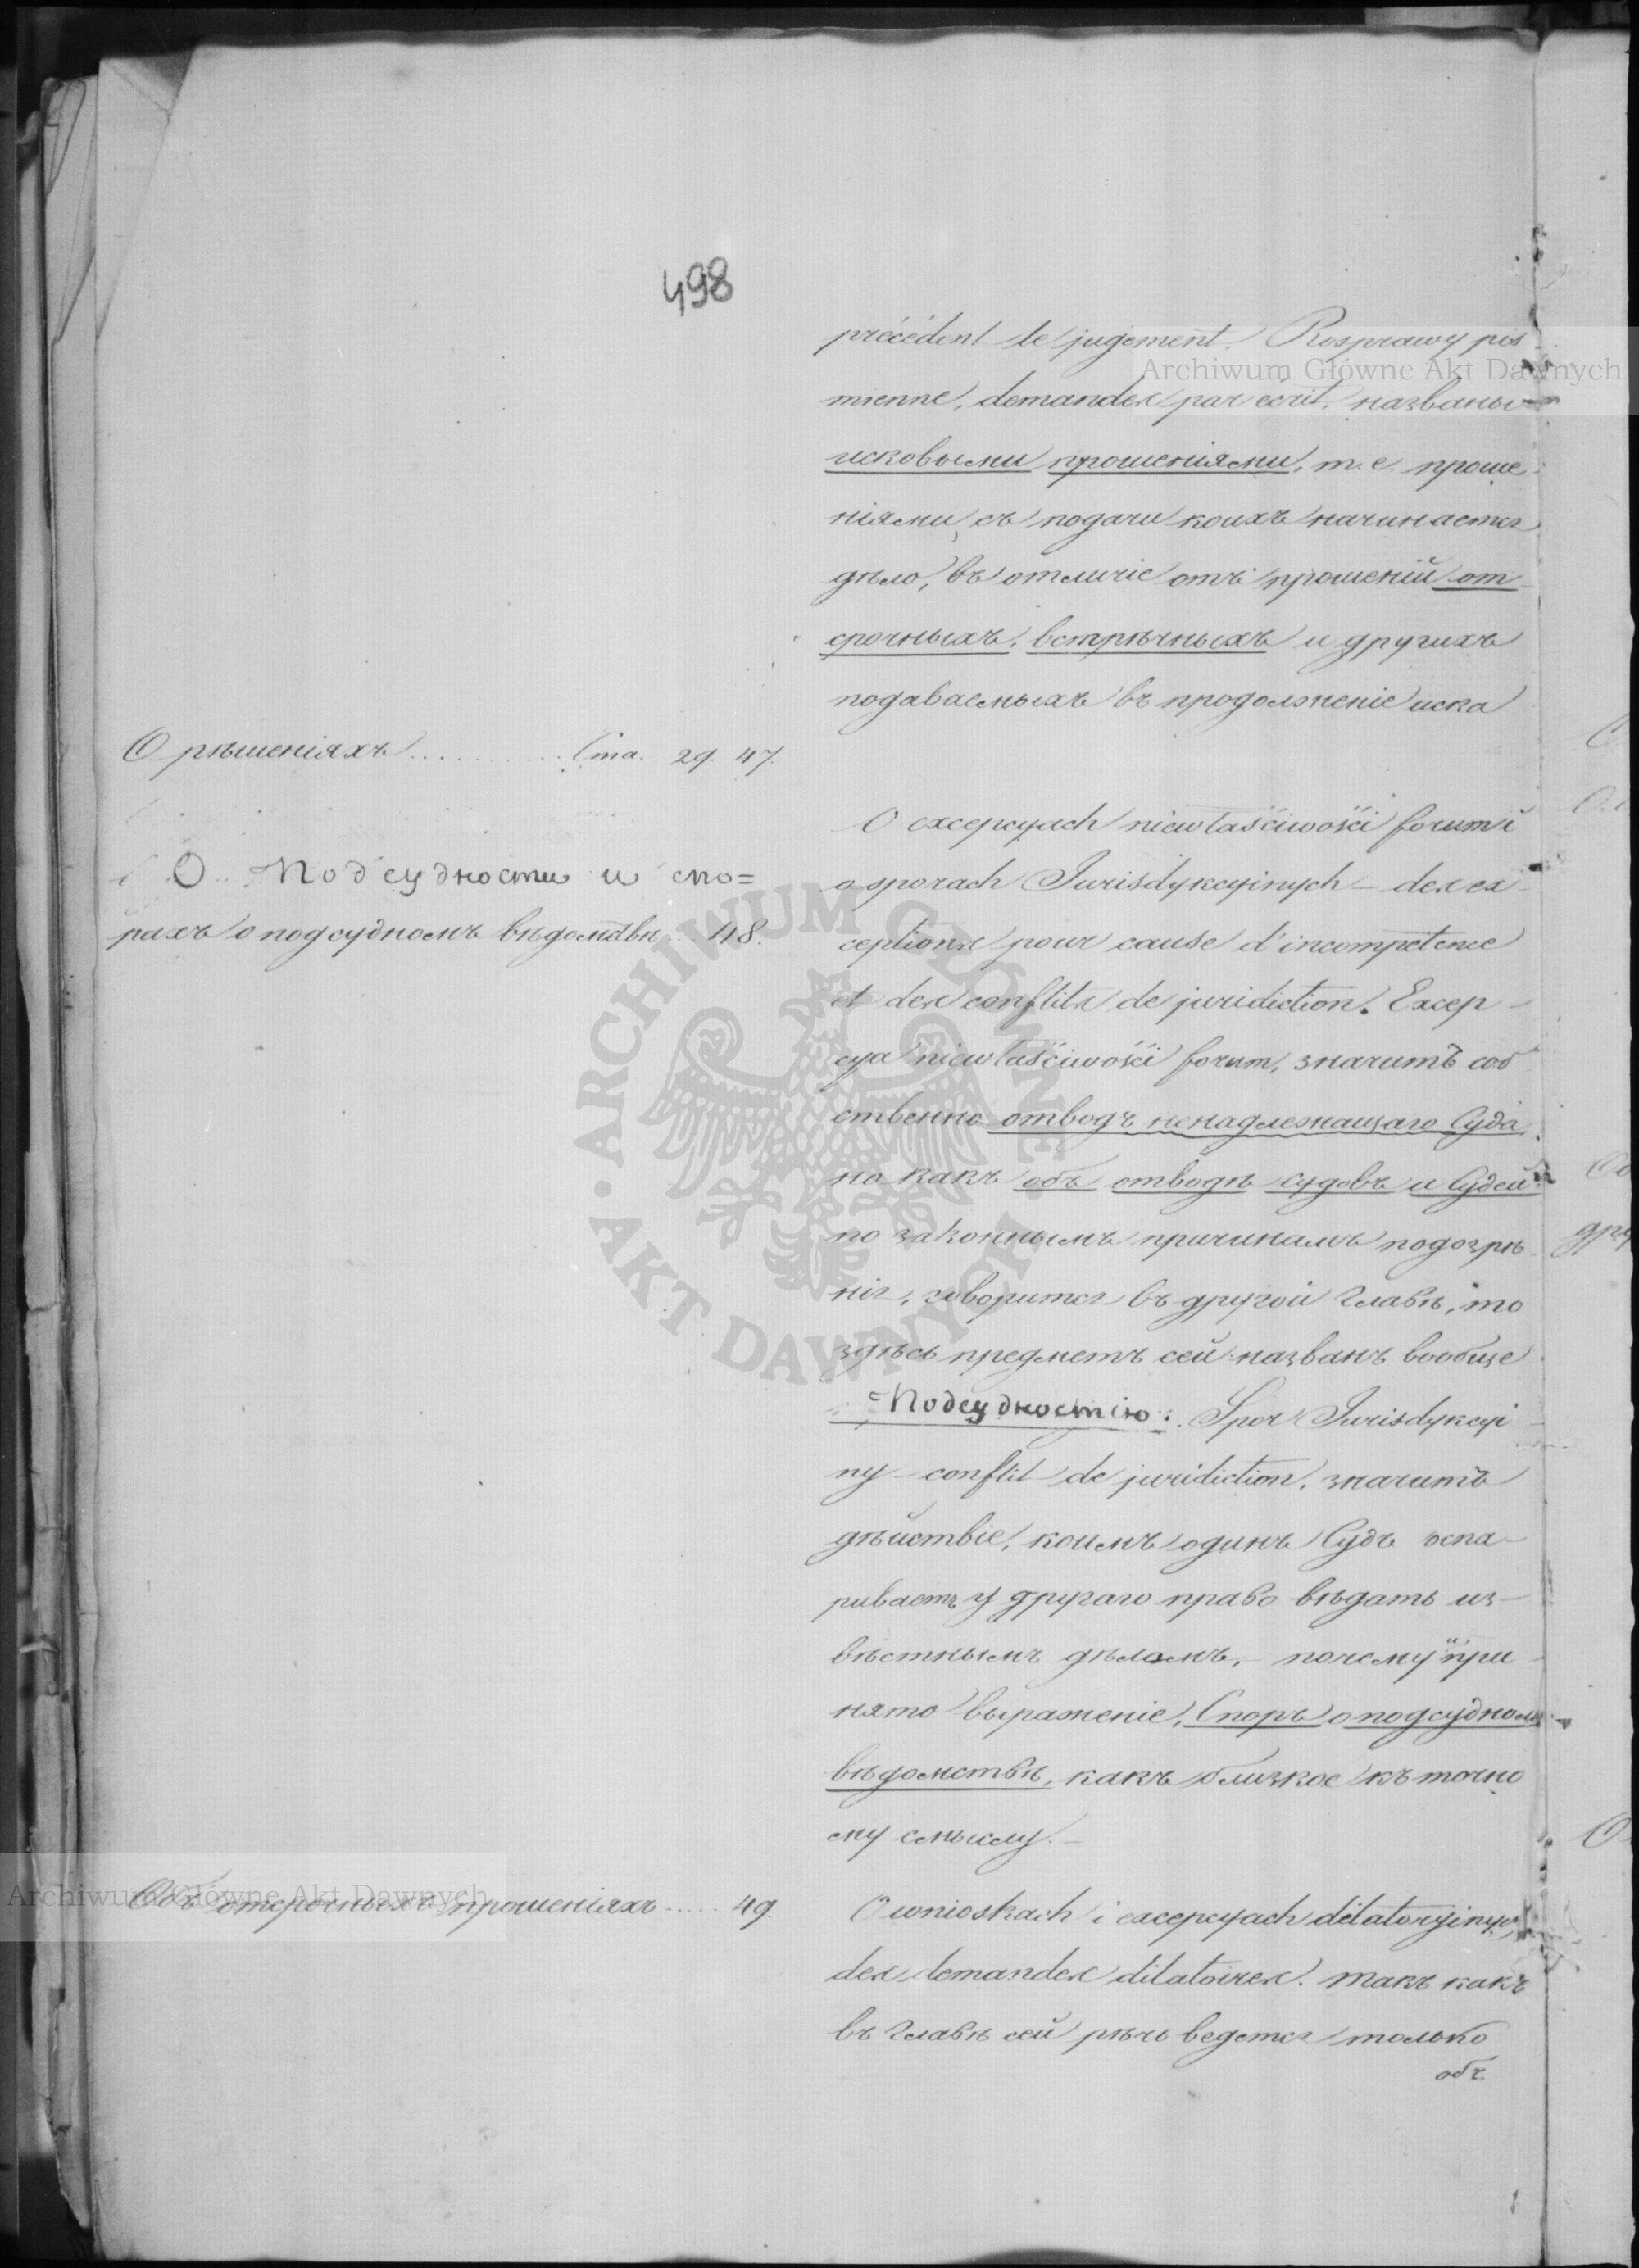 498
précédent le jugement. Rosprawy pis
mienne, demandes par écrit, названы
исковыми прошеніями, т. е. проше
ніями, съ подачи коихъ начинается
дѣло, въ отличіе отъ прошеній от
срочныхъ, встрѣчныхъ и другихъ
подаваемыхъ въ продолженіе иска
О рѣшеніяхъ ........... Ста. 29. 47.
О Подсудности и спо=
рахъ о подсудномъ вѣдомствѣ ... 48.
O excepcyach niewłaściwości forum i
o sporach Jurisdykcyinych – des ex
ceptions pour cause d'incompétence
et des conflits de juridiction. Excep –
cya niewłaściwości forum, значитъ соб
ственно отводъ ненадлежащаго Суда,
но какъ объ отводѣ судовъ и Судей
по законнымъ причинамъ подозрѣ
нія, говорится въ другой Главѣ, то
здѣсь предметъ сей названъ вообще
Подсудностію. Spor Jurisdykcyi
ny – conflit de juridiction, значитъ
дѣйствіе, коимъ одинъ Судъ оспа
риваетъ у другаго право вѣдать из–
вѣстнымъ дѣломъ, – почему и при
нято выраженіе, Споръ о подсудномъ
вѣдомствѣ, какъ близкое къ точно
му смыслу. –
Объ отсрочныхъ прошеніяхъ ..... 49.
O wnioskach i excepcyach dilatoryinych
des demandes dilatoires. такъ какъ
въ Главѣ сей рѣчь ведется только
объ
Archiwum Główne Akt Dawnych
ARCHIWUM GŁÓWNE • AKT DAWNYCH •
Archiwum Główne Akt Dawnych